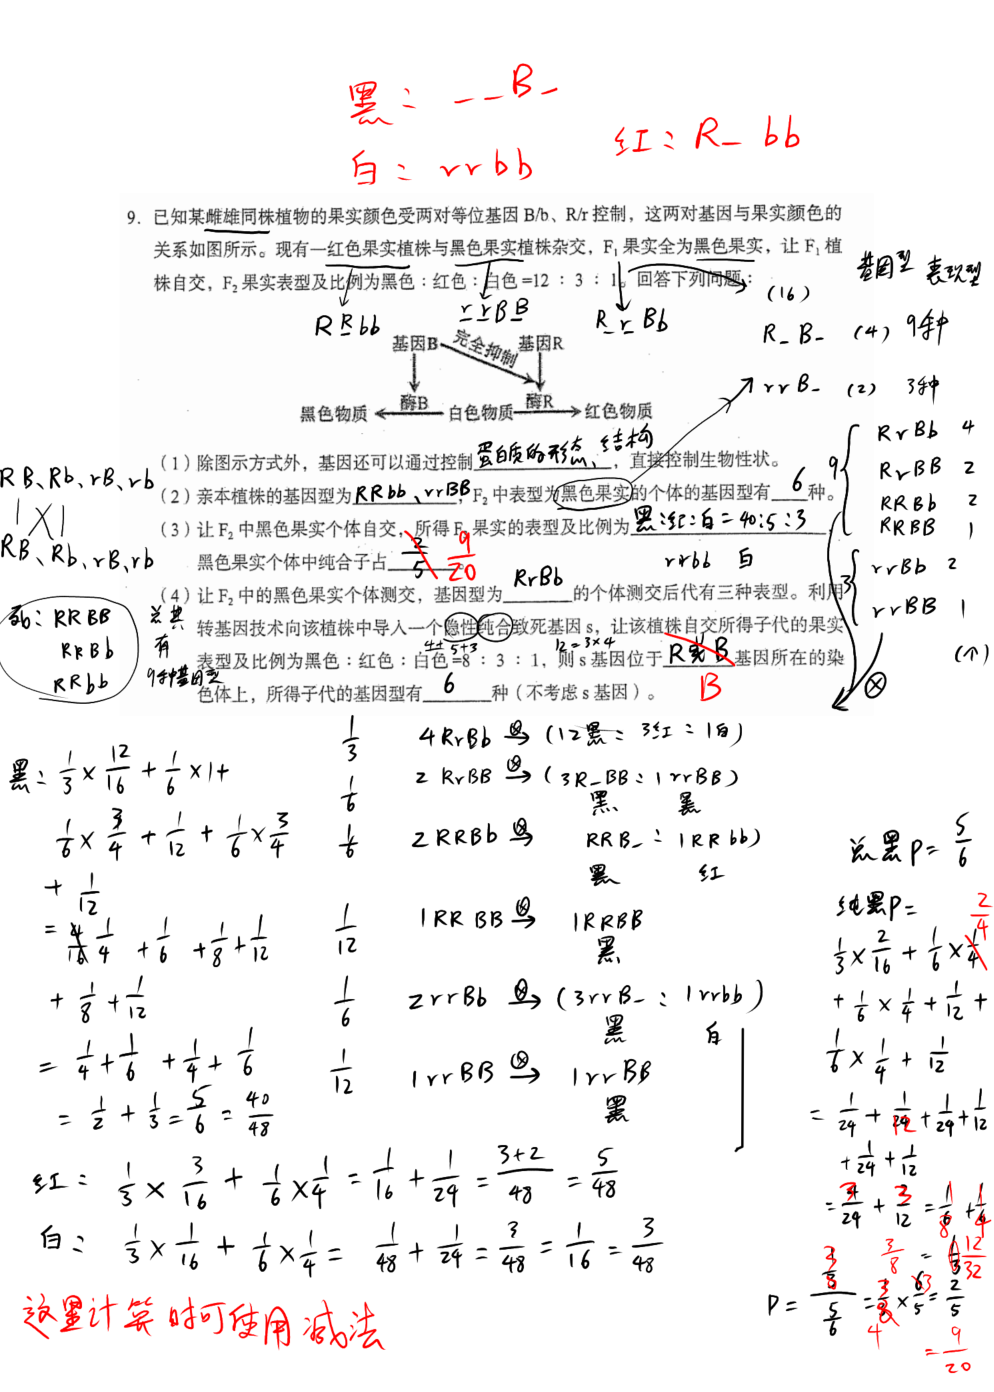 黑：__B_
白：rrbb
红：R_bb
9. 已知某雌雄同株植物的果实颜色受两对等位基因 B/b、R/r 控制，这两对基因与果实颜色的
关系如图所示。现有一红色果实植株与黑色果实植株杂交，F₁果实全为黑色果实，让 F₁植
株自交，F₂果实表型及比例为黑色：红色：白色=12：3：1。回答下列问题：
RRbb
rrBB
RrBb
(16)
基因型 表现型
R_B_ (4) 9种
rrB_ (2) 3种
基因B 完全抑制 基因R
酶B 酶R
黑色物质 白色物质 红色物质
9
RrBb 4
RrBB 2
RRBb 2
RRBB 1
3
rrBb 2
rrBB 1
(个)
（1）除图示方式外，基因还可以通过控制蛋白质的形态、结构，直接控制生物性状。
（2）亲本植株的基因型为RRbb、rrBB，F₂中表型为黑色果实的个体的基因型有6种。
（3）让 F₂中黑色果实个体自交，所得 F₃果实的表型及比例为黑:红:白=40:5:3
黑色果实个体中纯合子占 2/5 9/20
rrbb 白
RrBb
（4）让 F₂中的黑色果实个体测交，基因型为______的个体测交后代有三种表型。利用
转基因技术向该植株中导入一个隐性纯合致死基因 s，让该植株自交所得子代的果实
4+4 5+3 12=3×4
表型及比例为黑色：红色：白色=8：3：1，则 s 基因位于 R或B 基因所在的染
B
色体上，所得子代的基因型有6种（不考虑 s 基因）。
RB、Rb、rB、rb
RB、Rb、rB、rb
死：RRBB
RRBb
RRbb
总共
有
9种基因型
黑：1/3×12/16+1/6×1+
1/6×3/4+1/12+1/6×3/4
+1/12
=1/4+1/6+1/8+1/12
+1/8+1/12
=1/4+1/6+1/4+1/6
=1/2+1/3=5/6=40/48
1/3 4RrBb ⊗→ (12黑：3红：1白)
1/6 2RrBB ⊗→ (3R_BB：1rrBB)
黑 黑
1/6 2RRBb ⊗→ RRB_：1RRbb)
黑 红
1/12 1RRBB ⊗→ 1RRBB
黑
1/6 2rrBb ⊗→ (3rrB_：1rrbb)
黑 白
1/12 1rrBB ⊗→ 1rrBB
黑
红：1/3×3/16+1/6×1/4=1/16+1/24=3+2/48=5/48
白：1/3×1/16+1/6×1/4=1/48+1/24=3/48=1/16=3/48
这里计算时可使用减法
总黑P=5/6
纯黑P=
2/4
1/3×2/16+1/6×1/4
+1/6×1/4+1/12+
1/6×1/4+1/12
=1/24+1/24+1/24+1/12
+1/24+1/12
P=
5/6
=2/5
=9/20